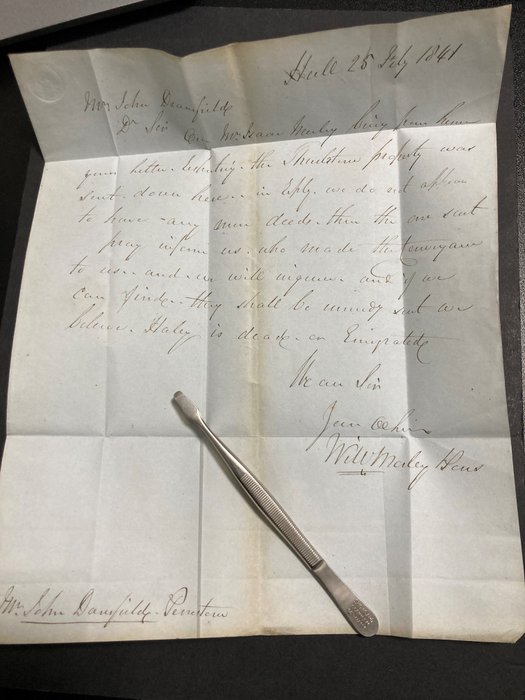 Hull 25 Feby 1841
Mr John Dransfield
Dr Sir Our Mr Isaac Morley being from home
your letter respecting the property was
sent down here. in Reply we do not appear
to have any more deeds than the one sent
pray inform us who made the Conveyance
to us and we will inquire and if we
can find they shall be sent we
believe Haley is dead or Emigrated
We are Sir
Your
Willm Morley &
Mr John Dransfield Penistone